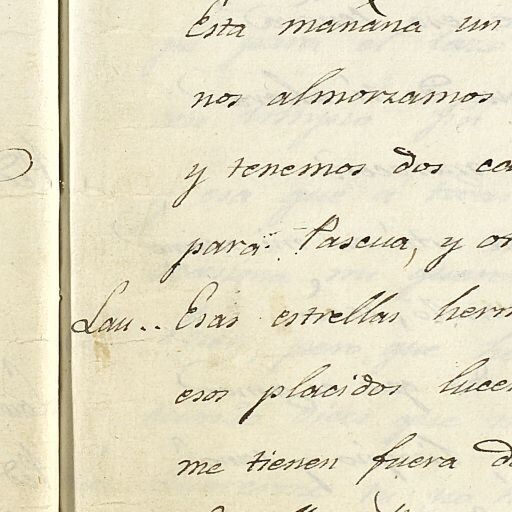 Esta mañana un
nos almorzamos
y tenemos dos ca
para Pascua, y ot
Lau.. Esas estrellas herm
esos placidos luce
me tienen fuera d